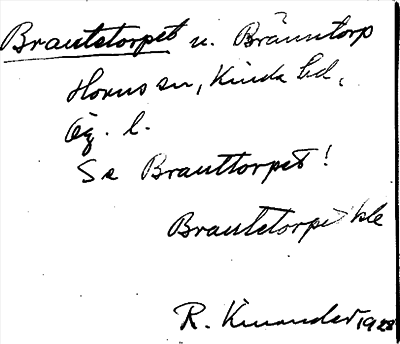 Brautstorpet u. Brånstorp
Horns sn, Kinda hd,
Ög. l.
Se Brauttorpet!
Brautstorpet
R. Kinander 1928